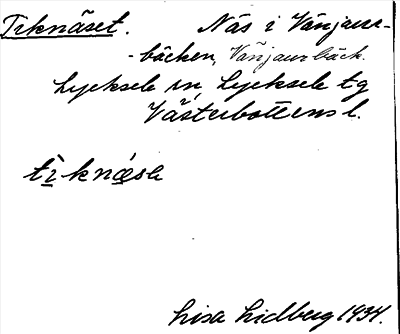 Tirknäset. Näs i Vänjaur-
-bäcken, Vänjaurbäck.
Lycksele sn, Lycksele tg
Västerbottens l.
tìrknǽsə
Lisa Lidberg 1934.